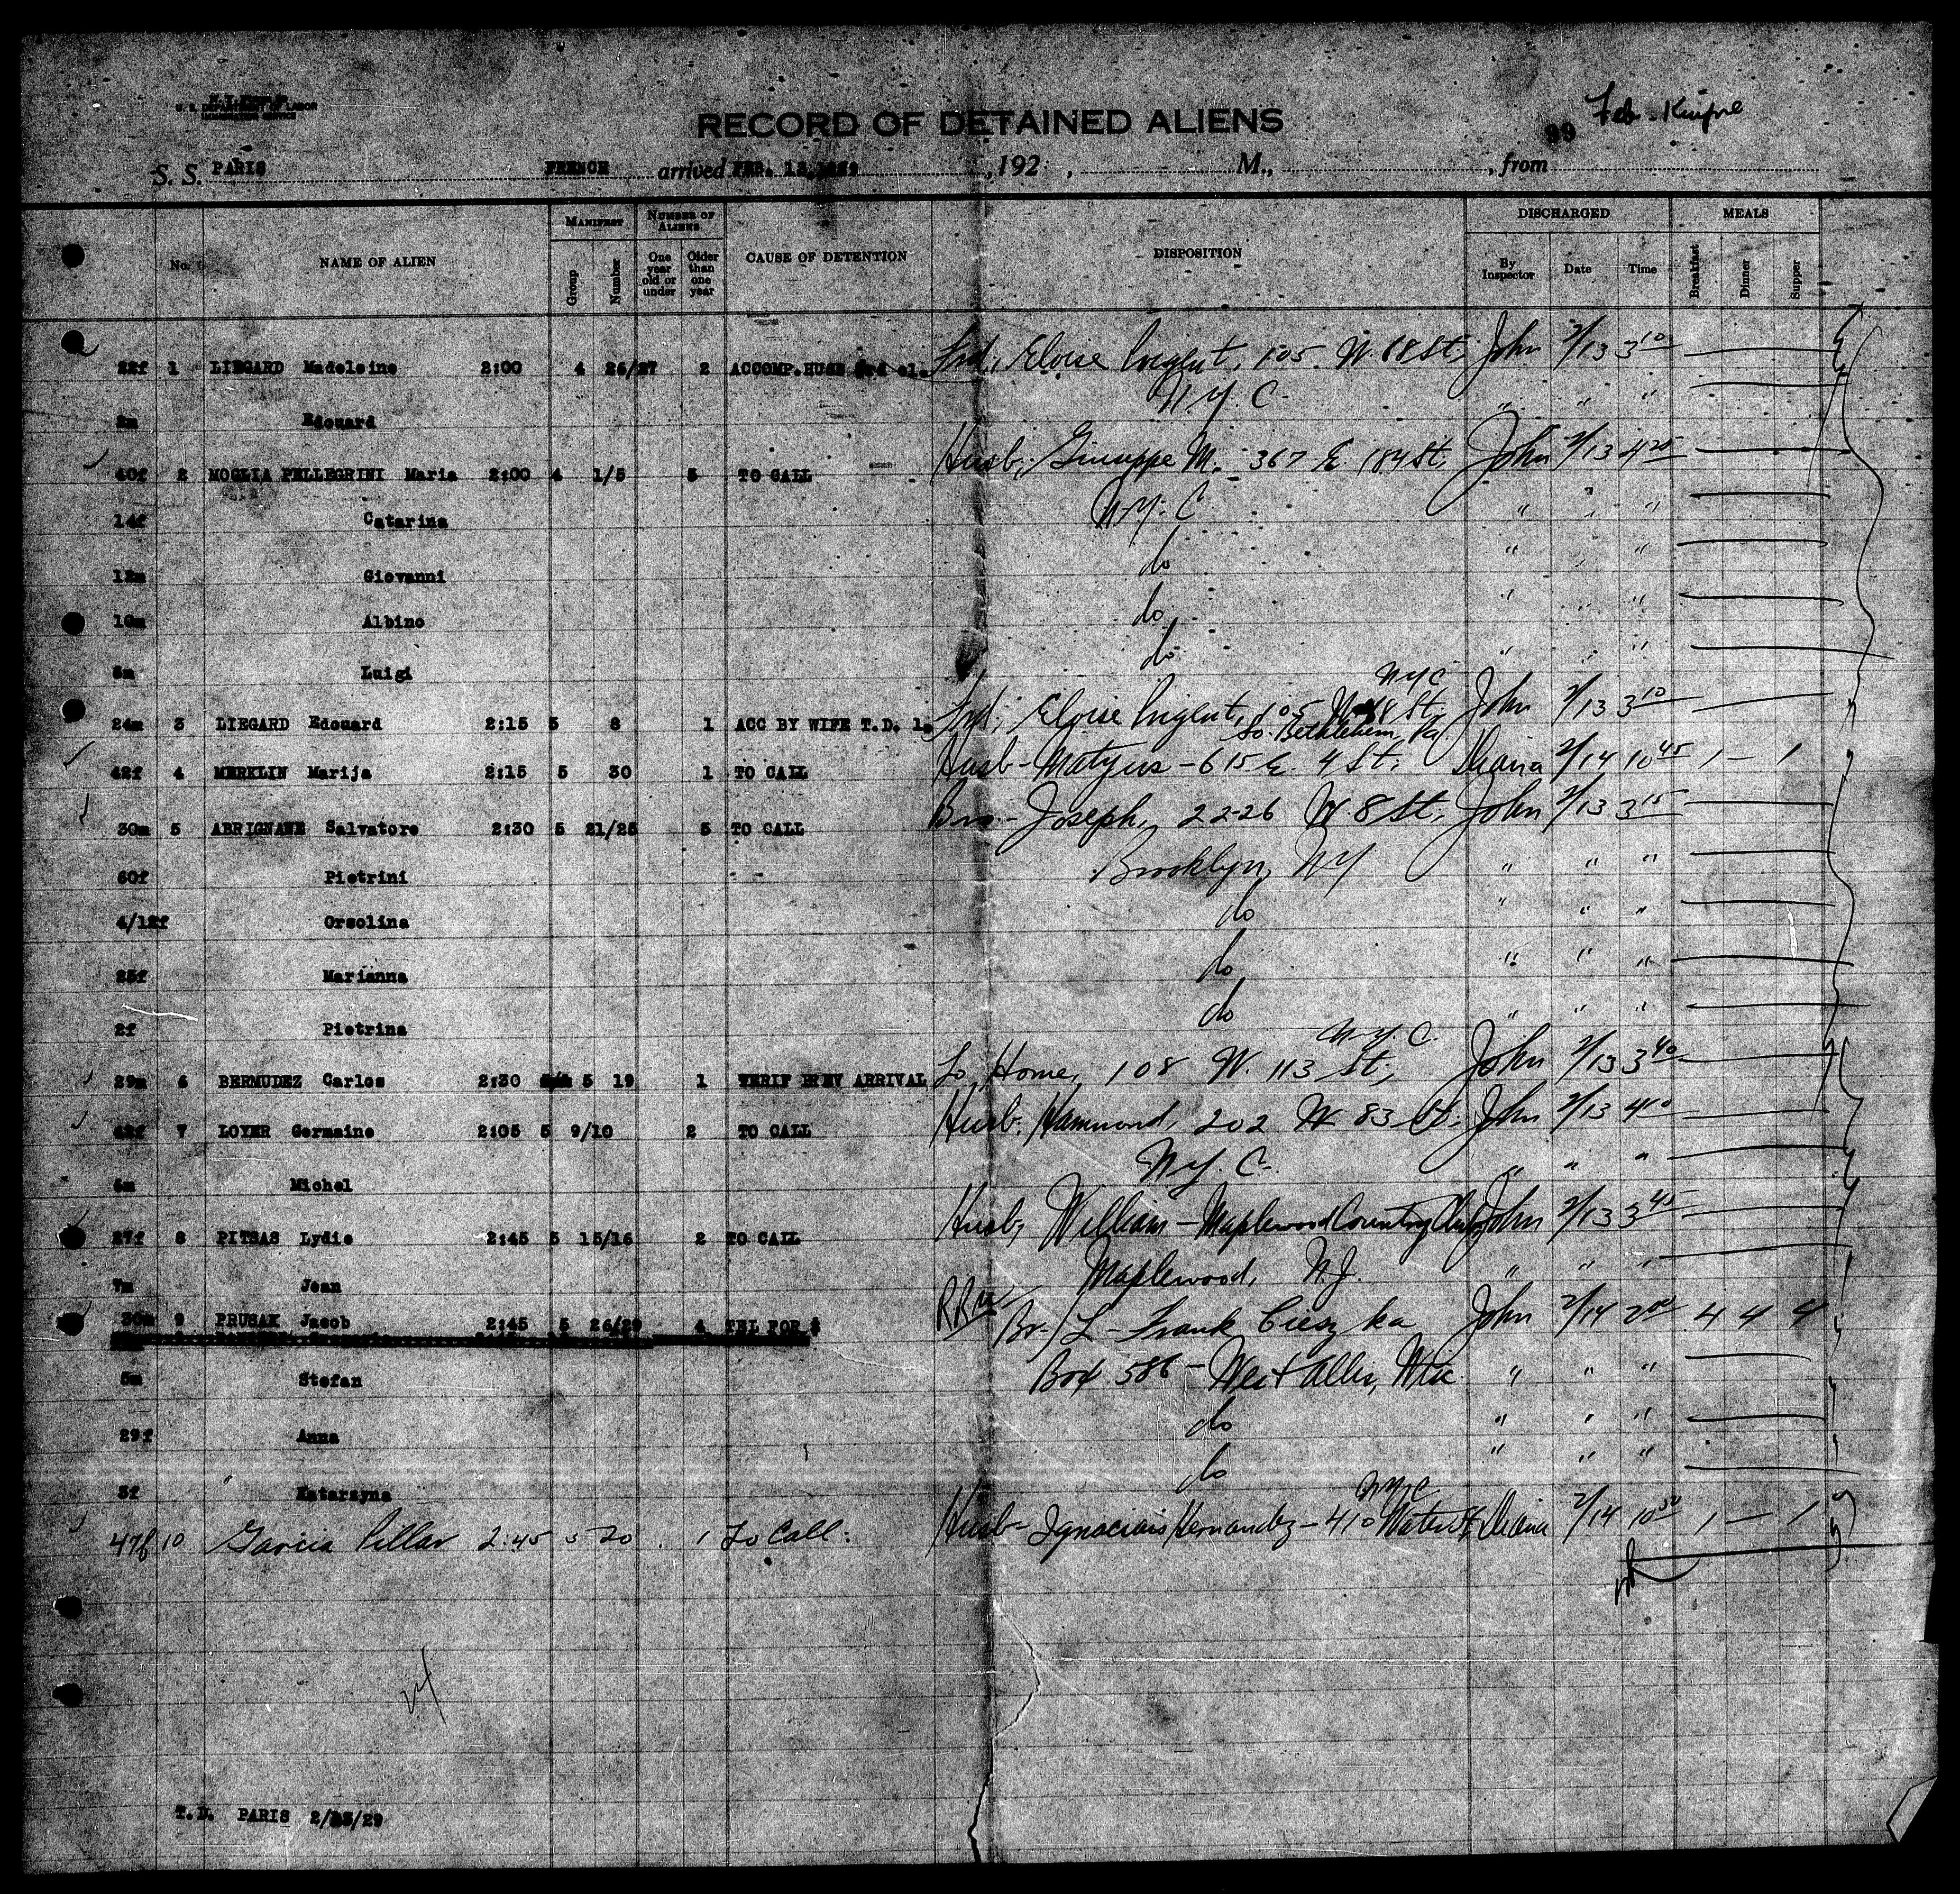 U. S. DEPARTMENT OF LABOR
IMMIGRATION SERVICE
RECORD OF DETAINED ALIENS
99 Feb.
S. S. PARIS FRENCH arrived FEB. 1929 , 192 , M., , from
No. NAME OF ALIEN MANIFEST Group Number NUMBER OF ALIENS One year old or under Older than one year CAUSE OF DETENTION DISPOSITION DISCHARGED By Inspector Date Time MEALS Breakfast Dinner Supper
22f 1 LIEGARD Madeleine 2:00 4 26/27 2 ACCOMP.HUSB 3rd cl. Frd, Eloise 105 W. 68 St, John 2/13 3 10
2m Edouard N Y. C. " " "
40f 2 MOGLIA PELLEGRINI Maria 2:00 4 1/5 5 TO CALL Husb, Giuseppe M. 367 E. 184 St, John 2/13 4 25
14f Catarina N.Y. C " " "
12m Giovanni do " " "
10m Albino do " " "
6m Luigi do " " "
NYC
24m 3 LIEGARD Edouard 2:15 5 8 1 ACC BY WIFE T.D. 1. Frd, Eloise 105 W. 68 St. John 2/13 3 10
So. Bethlehem, Pa
42f 4 MERKLIN Marija 2:15 5 30 1 TO CALL Husb - Matyus - 615 E. 4 St. Diana 2/14 10 45 1 - 1
30m 5 ABRIGNANE Salvatore 2:30 5 21/25 5 TO CALL Bro. - Joseph, 22-26 W. 8 St, John 2/13 3 15
60f Pietrini Brooklyn, NY " " "
4/12f Orsolina do " " "
25f Marianna do " " "
2f Pietrina do " " "
N.Y. C.
29m 6 BERMUDEZ Carlos 2:30 5 19 1 VERIF PREV ARRIVAL To Home, 108 W. 113 St, John 2/13 3 40
42f 7 LOYER Germaine 2:05 5 9/10 2 TO CALL Husb. Hammond, 202 W 83 St. John 2/13 4 10
6m Michel N.Y. C. " " "
27f 8 PITSAS Lydie 2:45 5 15/16 2 TO CALL Husb, William - Maplewood Country Club John 2/13 3 45
7m Jean Maplewood, N.J. " " "
30m 9 PRUSAK Jacob 2:45 5 26/29 4 TEL FOR $ Br./L - Frank Cieszka John 2/14 2 00 4 4 4
5m Stefan Box 586 - West Allis, Wis " " "
29f Anna do " " "
3f Katarzyna do " " "
NYC
47f 10 Garcia Pillar 2:45 5 20 1 To Call. Husb - Hernandez - 410 Water St Diana 2/14 10 50 1 - 1
T.D. PARIS 2/13/29